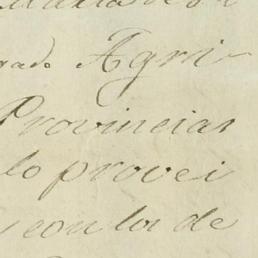 rado Agri-
Provincias
lo provei
con los de